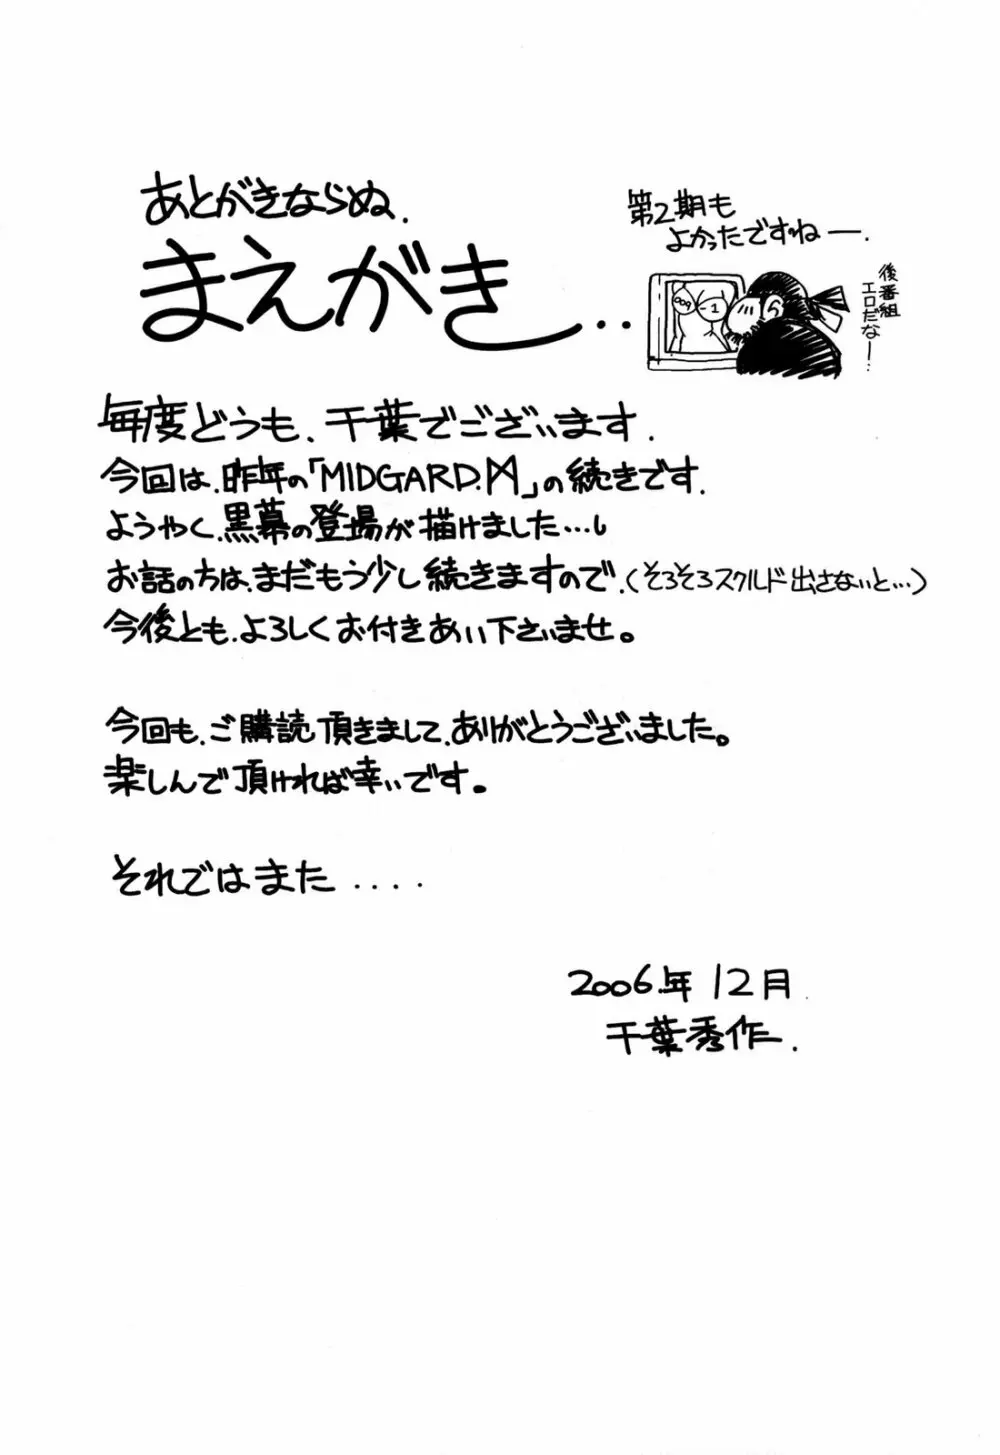 あとがきならぬ、
まえがき..
第2期も
よかったですねー.
後番組
エロだなー…
009
-1
毎度どうも、千葉でございます.
今回は、昨年の「MIDGARD.ᛞ」の続きです.
ようやく、黒幕の登場が描けました…し
お話のちは、まだもう少し続きますので、(そろそろスクルド出さないと…)
今後とも、よろしくお付きあい下さいませ。
今回も、ご購読頂きまして、ありがとうございました。
楽しんで頂ければ幸いです。
それではまた....
2006.年 12月
千葉秀作.